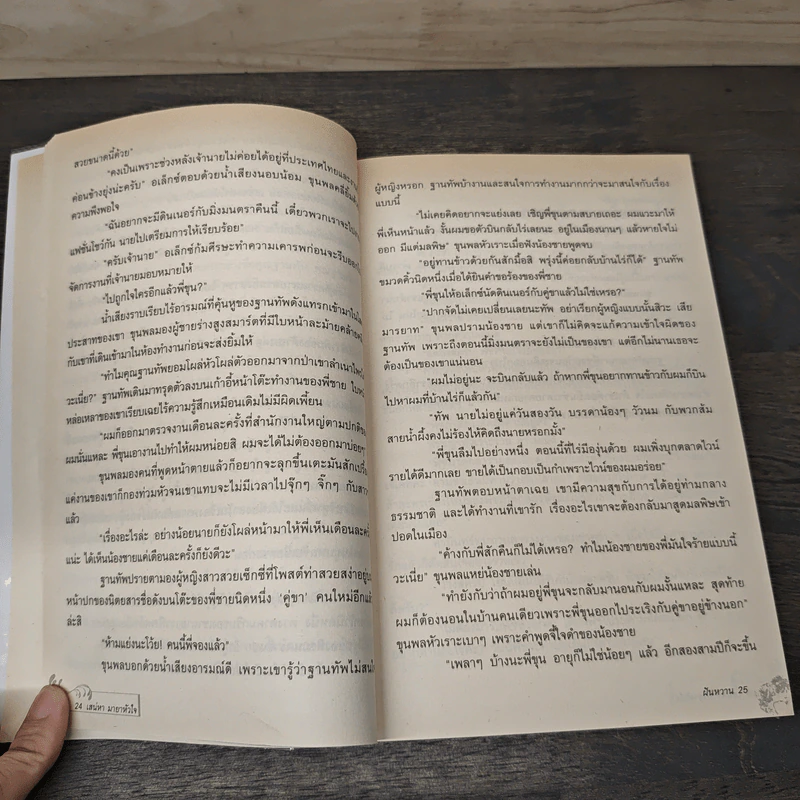 สวยขนาดนี้ด้วย"
"คงเป็นเพราะช่วงหลังเจ้านายไม่ค่อยได้อยู่ที่ประเทศไทยและงาน
ค่อนข้างยุ่งน่ะครับ" อเล็กซ์ตอบด้วยน้ำเสียงนอบน้อม ขุนพลคลี่ยิ้มด้วย
ความพึงพอใจ
"ฉันอยากจะมีดินเนอร์กับมิ่งมนตราคืนนี้ เดี๋ยวพวกเราจะไป
แฟชั่นโชว์กัน นายไปเตรียมการให้เรียบร้อย"
"ครับเจ้านาย" อเล็กซ์ก้มศีรษะทำความเคารพก่อนจะรีบออก
จัดการงานที่เจ้านายมอบหมายให้
"ไปถูกใจใครอีกแล้วพี่ขุน?"
น้ำเสียงราบเรียบไร้อารมณ์ที่คุ้นหูของฐานทัพดังแทรกเข้ามาใน
ประสาทของเขา ขุนพลมองผู้ชายร่างสูงสมาร์ตที่มีใบหน้าละม้ายคล้าย
กับเขาที่เดินเข้ามาในห้องทำงานก่อนจะส่งยิ้มให้
"ทำไมคุณฐานทัพยอมโผล่หัวโผล่ตัวออกมาจากป่าเขาลำเนาไพร
วะเนี่ย?" ฐานทัพเดินมาทรุดตัวลงบนเก้าอี้หน้าโต๊ะทำงานของพี่ชาย
หล่อเหลาของเขาเรียบเฉยไร้ความรู้สึกเหมือนเดิมไม่มีผิดเพี้ยน
"ผมก็ออกมาตรวจงานเดือนละครั้งที่สำนักงานใหญ่ตามปกติของ
ผมนั่นแหละ พี่ขุนเอางานไปทำให้ผมหน่อยสิ ผมจะได้ไม่ต้องออกมาบ่อยๆ
ขุนพลมองคนที่พูดหน้าตายแล้วก็อยากจะลุกขึ้นเตะมันสัก
แค่งานของเขาก็กองท่วมหัวจนเขาแทบจะไม่มีเวลาไปจุ๊กๆ จิ๊กๆ กับ
แล้ว
"เรื่องอะไรล่ะ อย่างน้อยนายก็ยังโผล่หน้ามาให้พี่เห็นเดือนละครั้ง
แน่ะ ได้เห็นน้องชายแค่เดือนละครั้งก็ยังดีวะ"
ฐานทัพปรายตามองผู้หญิงสาวสวยเซ็กซี่ที่โพสต์ท่าสวยสง่าอยู่บน
หน้าปกของนิตยสารชื่อดังบนโต๊ะของพี่ชายนิดหนึ่ง 'คู่ขา' คนใหม่อีกแล้ว
ล่ะสิ
"ห้ามแย่งนะโว้ย! คนนี้พี่จองแล้ว"
ขุนพลบอกด้วยน้ำเสียงอารมณ์ดี เพราะเขารู้ว่าฐานทัพไม่สนใจ
24 เสน่หา มายาหัวใจ
ผู้หญิงหรอก ฐานทัพบ้างานและสนใจการทำงานมากกว่าจะมาสนใจกับเรื่อง
แบบนี้
"ไม่เคยคิดอยากจะแย่งเลย เชิญพี่ขุนตามสบายเถอะ ผมแวะมาให้
พี่เห็นหน้าแล้ว งั้นผมขอตัวบินกลับไร่เลยนะ อยู่ในเมืองนานๆ แล้วหายใจไม่
ออก มีแต่มลพิษ" ขุนพลหัวเราะเมื่อฟังน้องชายพูดจบ
"อยู่ทานข้าวด้วยกันสักมื้อสิ พรุ่งนี้ค่อยกลับบ้านไร่ก็ได้" ฐานทัพ
ขมวดคิ้วนิดหนึ่งเมื่อได้ยินคำขอร้องของพี่ชาย
"พี่ขุนให้อเล็กซ์นัดดินเนอร์กับคู่ขาแล้วไม่ใช่เหรอ?"
"ปากจัดไม่เคยเปลี่ยนเลยนะทัพ อย่าเรียกผู้หญิงแบบนั้นสิวะ เสีย
มารยาท" ขุนพลปรามน้องชาย แต่เขาก็ไม่คิดจะแก้ความเข้าใจผิดของ
ฐานทัพ เพราะถึงตอนนี้มิ่งมนตราจะยังไม่เป็นของเขา แต่อีกไม่นานเธอจะ
ต้องเป็นของเขาแน่นอน
"ผมไม่อยู่นะ จะบินกลับแล้ว ถ้าหากพี่ขุนอยากทานข้าวกับผมก็บิน
ไปหาผมที่บ้านไร่ก็แล้วกัน"
"ทัพ นายไม่อยู่แค่วันสองวัน บรรดาน้องๆ วัวนม กับพวกส้ม
สายน้ำผึ้งคงไม่ร้องไห้คิดถึงนายหรอกมั้ง"
"พี่ขุนลืมไปอย่างหนึ่ง ตอนนี้ที่ไร่มีองุ่นด้วย ผมเพิ่งบุกตลาดไวน์
รายได้ดีมากเลย ขายได้เป็นกอบเป็นกำเพราะไวน์ของผมอร่อย"
ฐานทัพตอบหน้าตาเฉย เขามีความสุขกับการได้อยู่ท่ามกลาง
ธรรมชาติ และได้ทำงานที่เขารัก เรื่องอะไรเขาจะต้องกลับมาสูดมลพิษเข้า
ปอดในเมือง
"ค้างกับพี่สักคืนก็ไม่ได้เหรอ? ทำไมน้องชายของพี่มันใจร้ายแบบนี้
วะเนี่ย" ขุนพลแหย่น้องชายเล่น
"ทำยังกับว่าถ้าผมอยู่พี่ขุนจะกลับมานอนกับผมงั้นแหละ สุดท้าย
ผมก็ต้องนอนในบ้านคนเดียวเพราะพี่ขุนออกไประเริงกับคู่ขาอยู่ข้างนอก"
ขุนพลหัวเราะเบาๆ เพราะคำพูดจี้ใจดำของน้องชาย
"เพลาๆ บ้างนะพี่ขุน อายุก็ไม่ใช่น้อยๆ แล้ว อีกสองสามปีก็จะขึ้น
ฝันหวาน 25